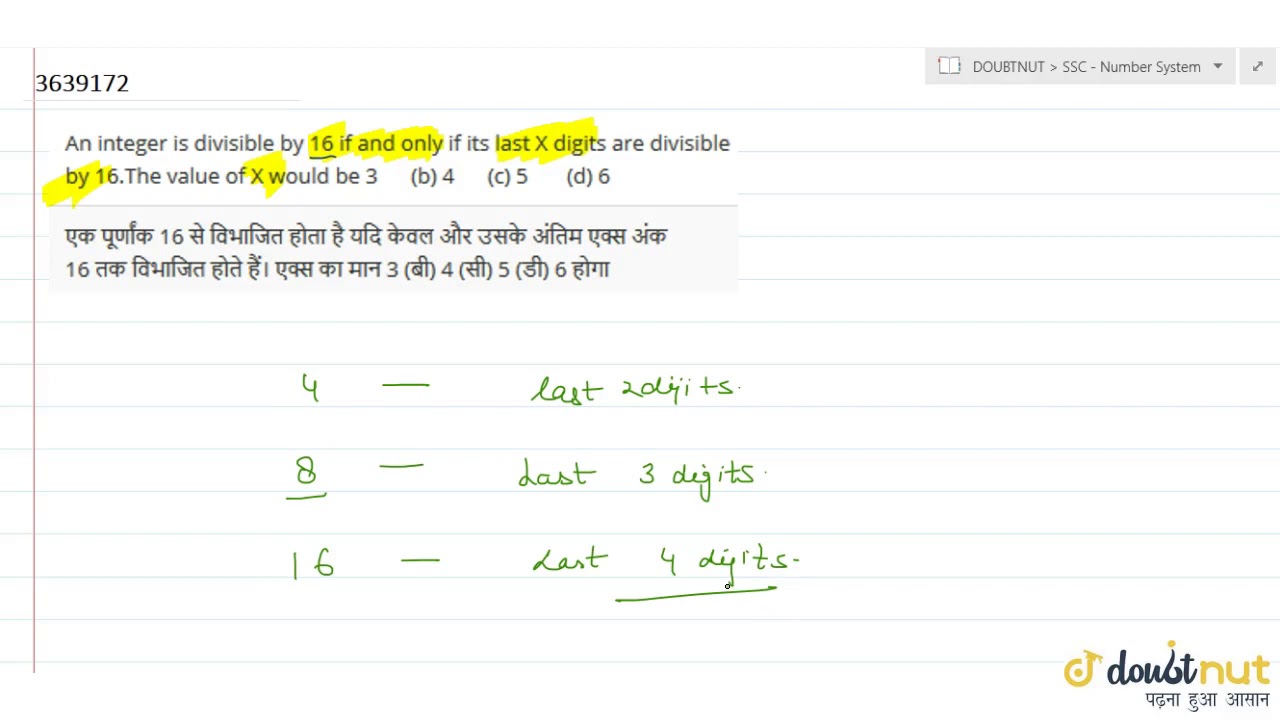 DOUBTNUT > SSC - Number System
3639172
An integer is divisible by 16 if and only if its last X digits are divisible
by 16.The value of X would be 3 (b) 4 (c) 5 (d) 6
एक पूर्णांक 16 से विभाजित होता है यदि केवल और उसके अंतिम एक्स अंक
16 तक विभाजित होते हैं। एक्स का मान 3 (बी) 4 (सी) 5 (डी) 6 होगा
4 — last 2 digits.
8 — Last 3 digits.
16 — Last 4 digits.
doubtnut
पढ़ना हुआ आसान